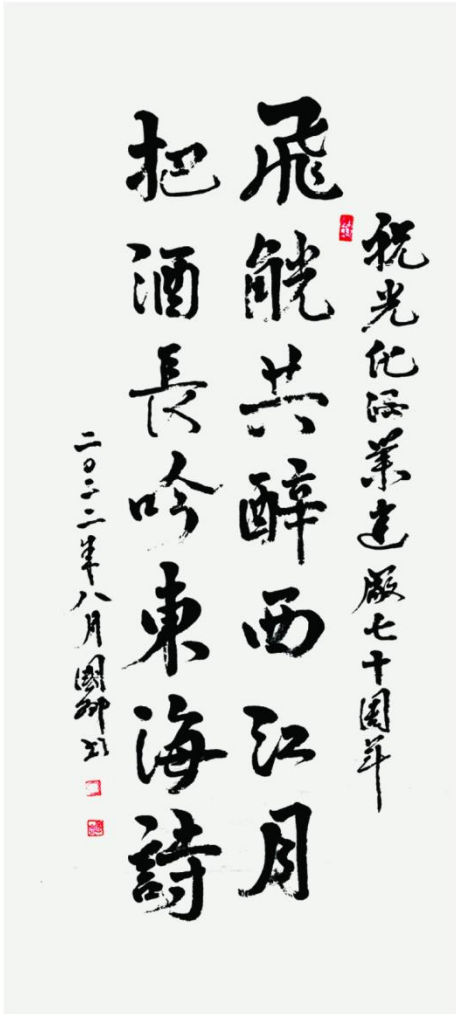 祝光化酒業建廠七十周年
飛觥共醉西江月
把酒長吟東海詩
二〇二二年八月國卿书